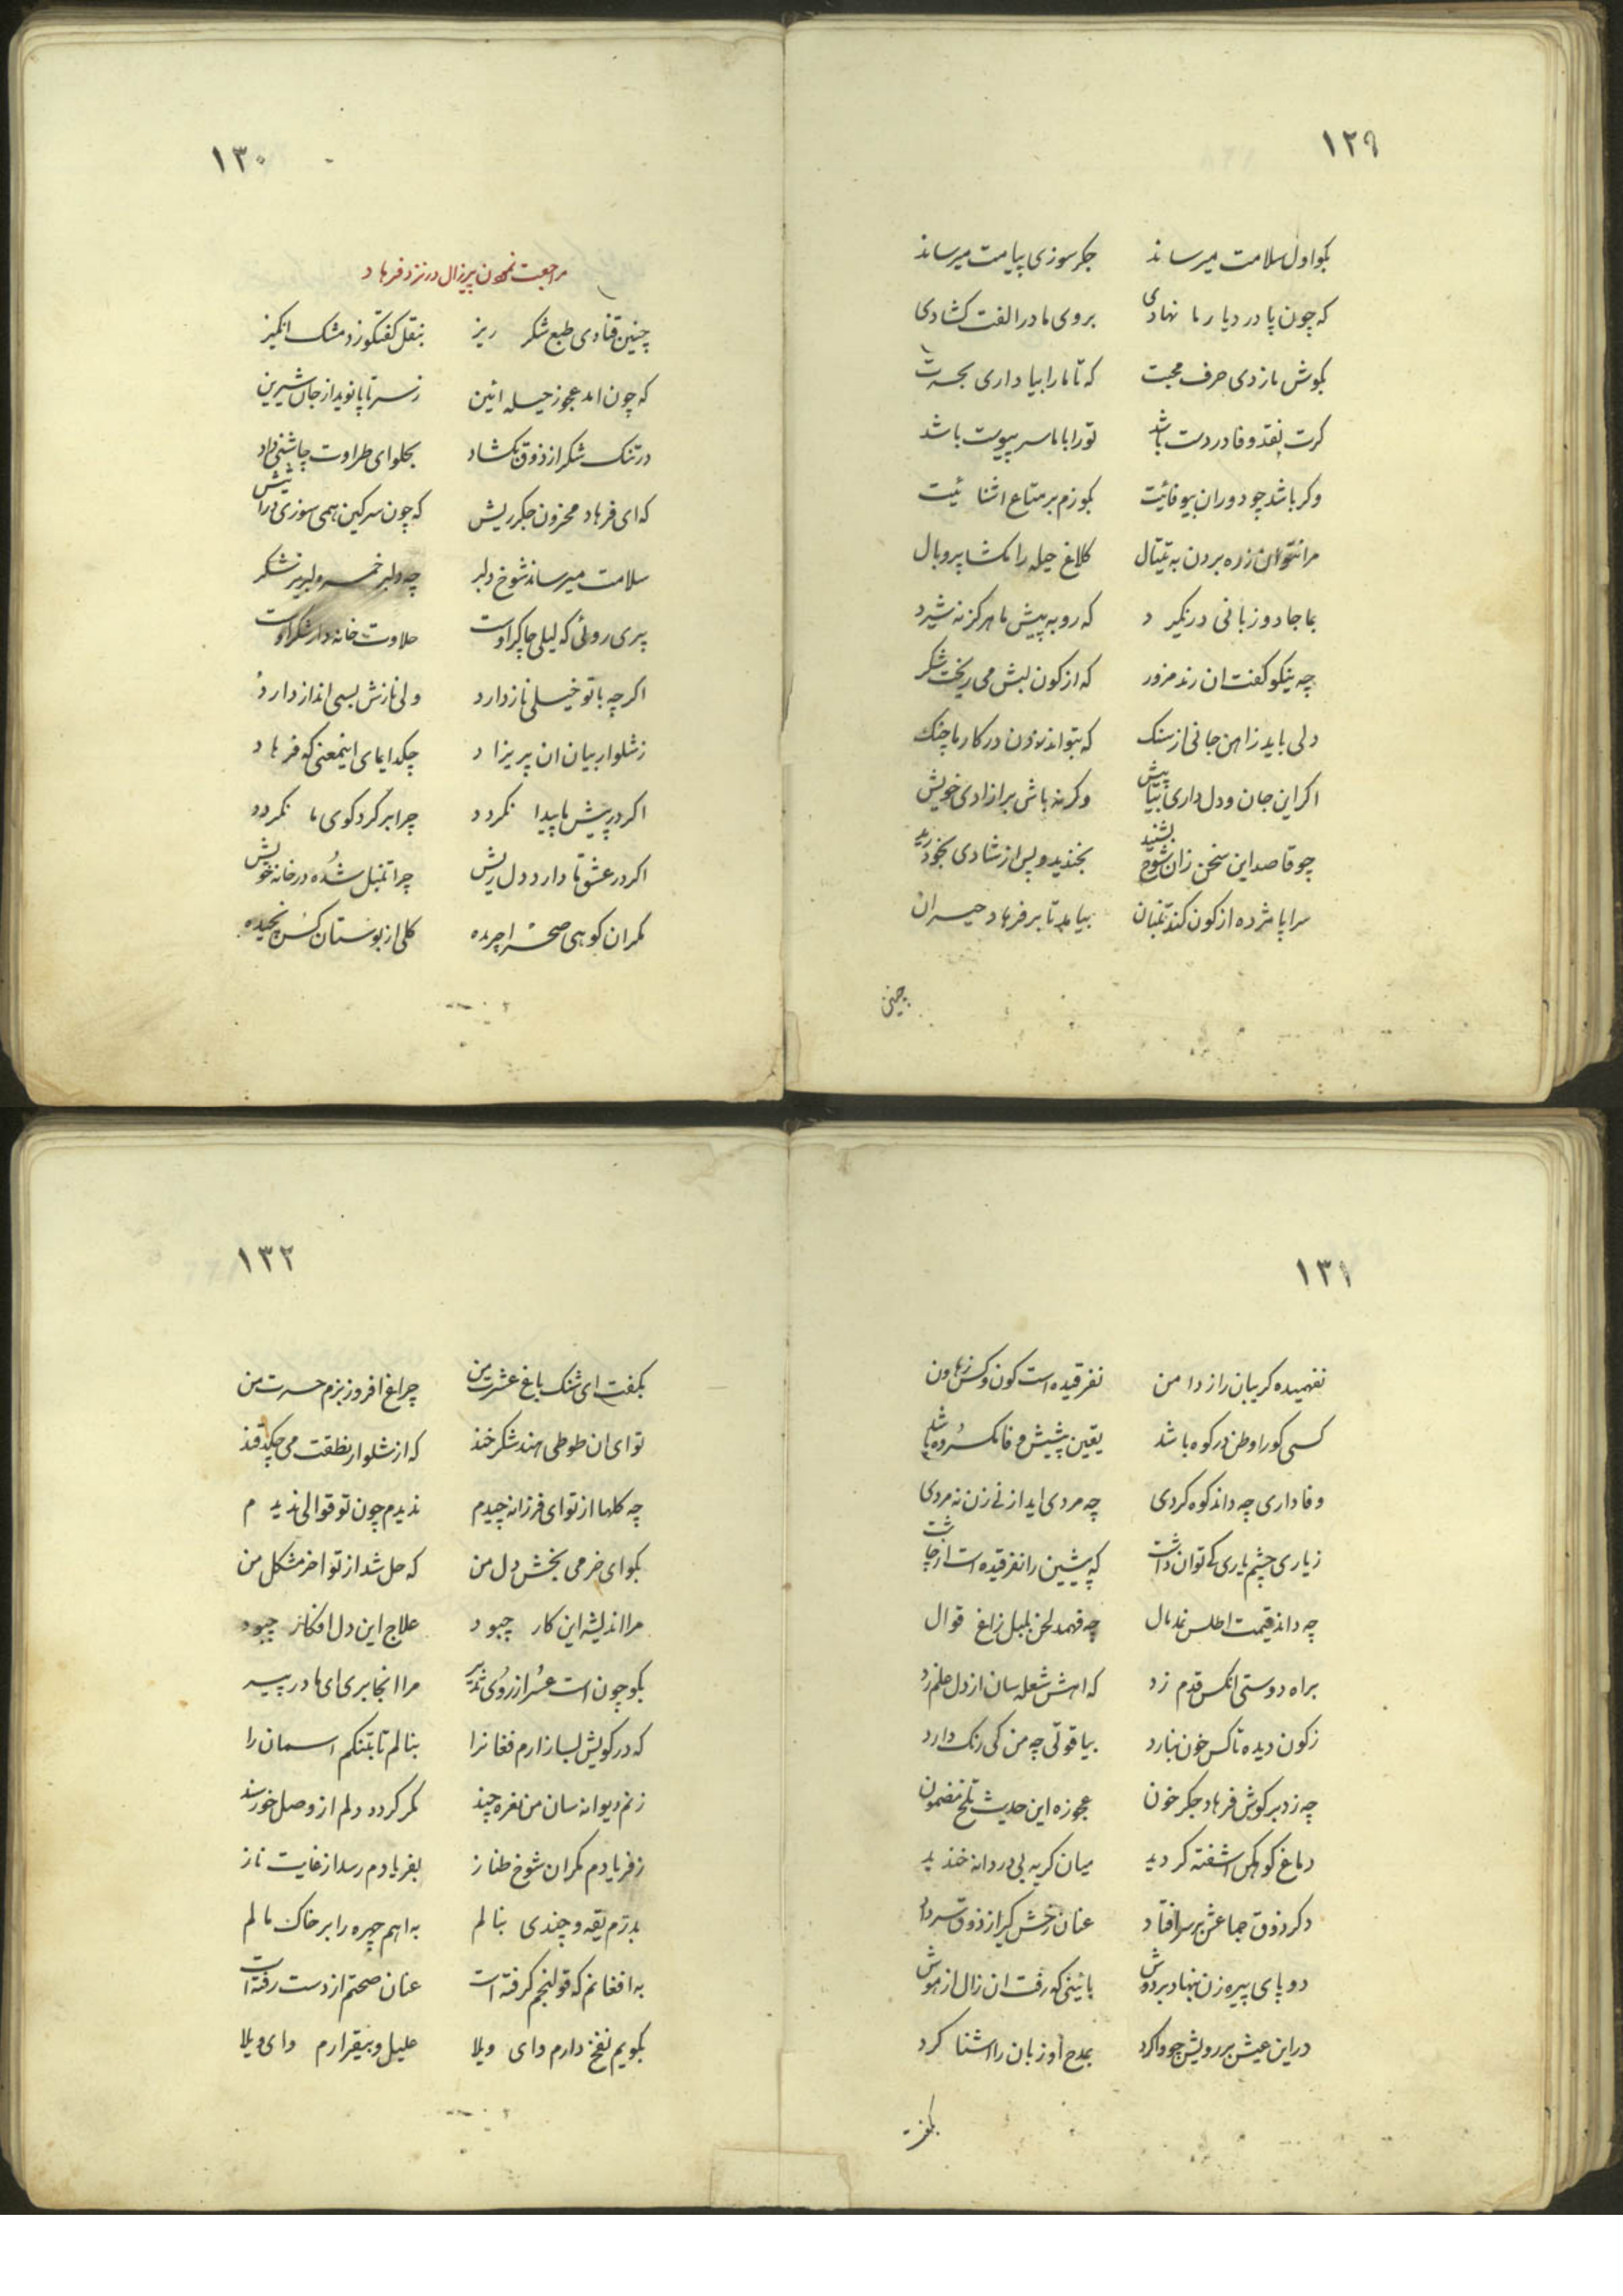 ۱۲۹
بکو اول سلامت میرساند جکر سوزی پیامت میرساند
که چون پا در دیار ما نهادی بروی ما در الفت کشادی
بکوش ما زدی حرف محبت که تا ما را بیاد اری بحسرت
کرت نقد وفا در دست باشد تو را با ما سر پیوست باشد
وکر باشد چو دوران بیوفائیت بکوزم بر متاع اشنا ئیت
مرا نتوان زره بردن به تیتال کلاغ حیله را مکشا پر و بال
بما جادو زبانی در نکیر د که روبه پیش ما هرکز نه شیرد
چه نیکو کفت ان رند مزور که از کون لبش می ریخت شکر
دلی باید ز اهن جانی از سنک که بتواند زدن در کار ما چنک
اکر این جان و دل داری بیا پیش وکرنه باش بر ازادی خویش
چو قاصد این سخن زان شوخ بشنید بخندید و پس از شادی بخود رید
سراپا مژده از کون کند تنبان بیامد تا بر فرهاد حیران
چنین
۱۳۰
مراجعت نمودن پیرزال در نزد فرهاد
چنین قنادی طبع شکر ریز بنقل کفتکو زد مشک انکیز
که چون امد عجوز حیله ائین ز سر تا پا نوید از جان شیرین
در تنک شکر از ذوق بکشاد بحلوای طراوت چاشنی داد
که ای فرهاد محزون جکر ریش که چون سرکین همی سوزی در اتش
سلامت میرساند شوخ دلبر چه دلبر خسرو لبریز شکر
پری روئی که لیلی چاکر اوست حلاوت خانه دار شکر اوست
اکرچه با تو خیلی ناز دارد ولی نازش بسی انداز دارد
ز شلوار بیان ان پریزا د چکد ایمای اینمعنی که فرها د
اکر در پیش ما پیدا نکردد چرا بر کرد کوی ما نکردد
اکر در عشق ما دارد دل ریش چرا تنبل شده در خانه خویش
مکر ان کوهی صحرا چریده کلی از بوستان کس نچیده
۱۳۱
نفهمیده کریبان را ز دامن نفرقیده است کون و کس ز هاون
کسی کو را وطن در کوه باشد یقین پشیش وفا مکرده باشد
وفاداری چه داند کوه کردی چه مردی اید از نی زن نه مردی
ز یاری چشم یاری کی توان داشت که پیشین را نفرقیده است از چاشت
چه داند قیمت اطلس نمدمال چه فهمد لحن بلبل زاغ قوال
براه دوستی انکس قدم زد که اهش شعله سان از دل علم زد
ز کون دیده تا کس خون نبارد بیاقوتی چه من کی رنک دارد
چه زد بر کوش فرهاد جکر خون عجوزه این حدیث تلخ مضمون
دماغ کوهکن اشفته کردید میان کریه بی دردانه خندید
دکر ذوق جماعش بر سر افتاد عنان رخش کیر از ذوق سر داد
دو پای پیره زن بنهاد بر دوش بائینی که رفت ان زال از هوش
در این عیش بر رویش چو وا کرد بمدح او زبان را اشنا کرد
بکفت
۱۳۲
بکفت ای شنک باغ عشرت من چراغ افروز بزم حسرت من
توای ان طوطی هند شکر خند که از شلوار نطقت می چکد قند
چه کلها از تو ای فرزانه چیدم ندیدم چون تو قوالی ندیدم
بکو ای خرمی بخش دل من که حل شد از تو اخر مشکل من
مرا اندیشه این کار چبود علاج این دل افکار چبود
بکو چون است عُر از روی تدبیر مرا انجا بری ای مادر پیر
که در کویش لسازارم فغانرا بنالم تا بتنکم اسمان را
زنم دیوانه سان من نعره چند مکر کردد دلم از وصل خورسند
ز فریادم مکر ان شوخ طناز بفریادم رسد از غایت ناز
بدرّم یقه و چندی بنالم به اهم چهره را بر خاک مالم
به افغانم که قولنجم کرفته است عنان صحتم از دست رفته است
بکویم نفخ دارم وای ویلا علیل و بیقرارم وای ویلا